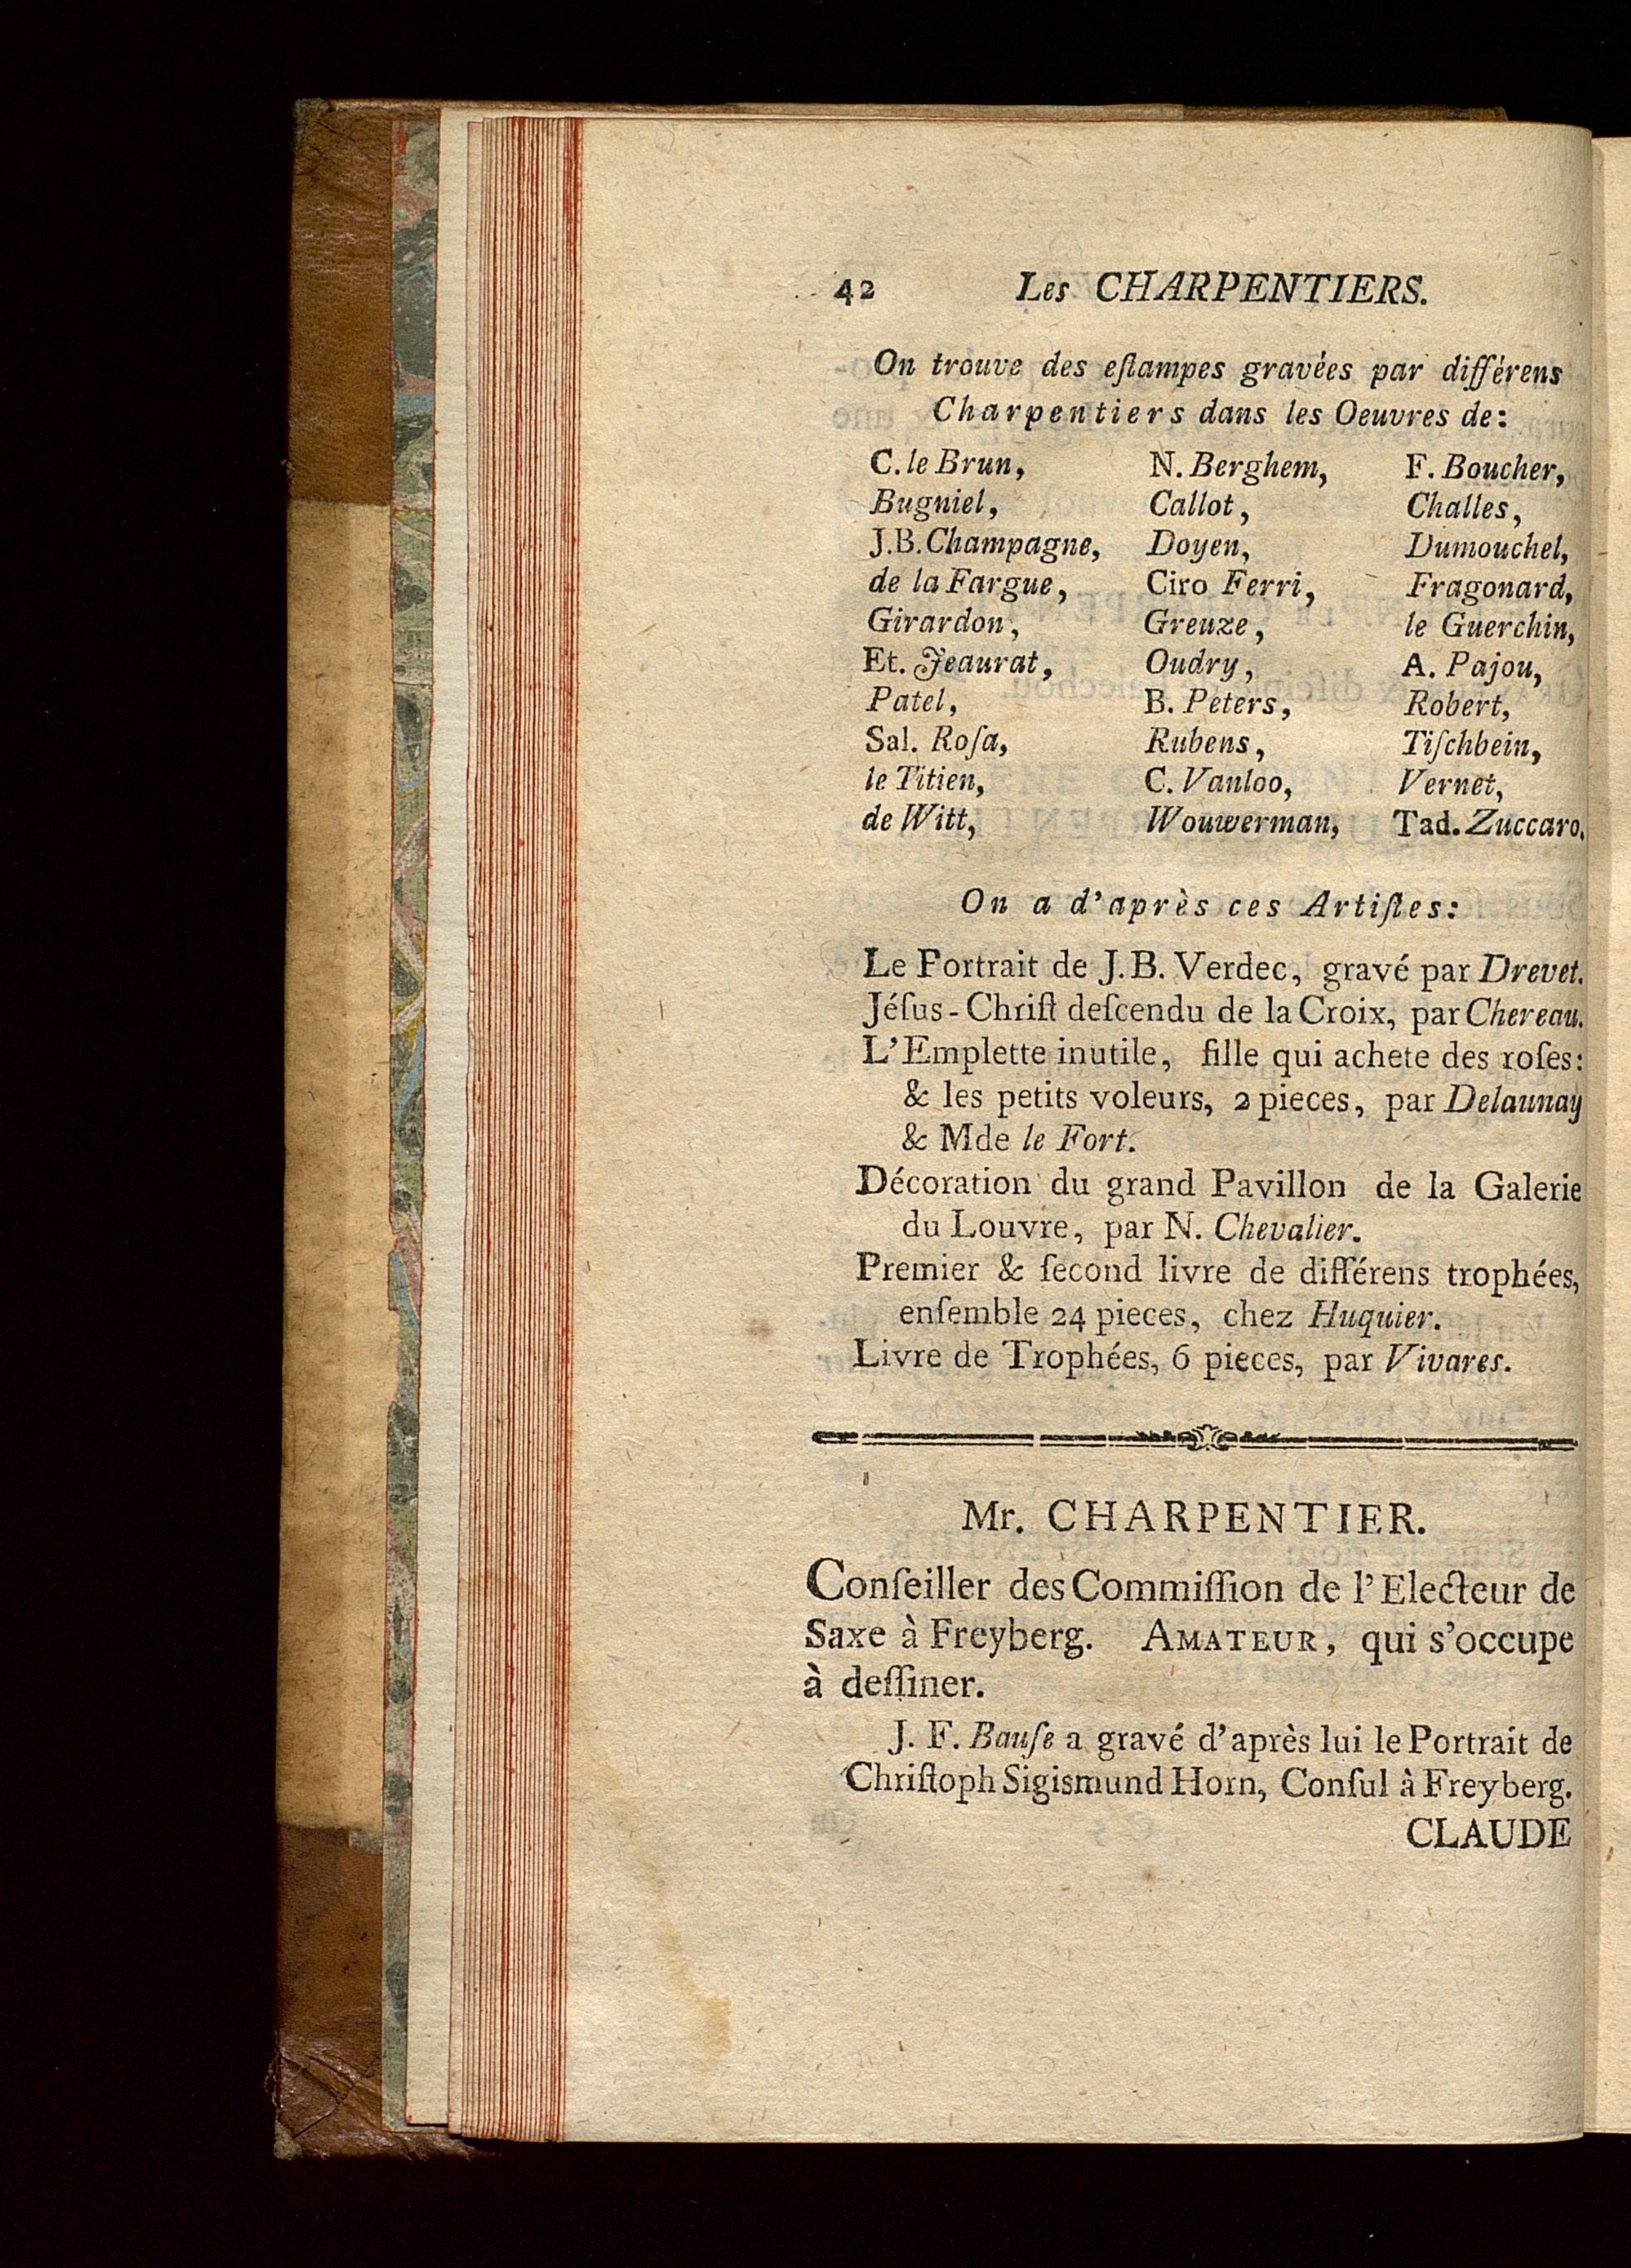 42 Les CHARPENTIERS.
On trouve des eſtampes gravées par différens
Charpentiers dans les Oeuvres de:
C. le Brun, N. Berghem, F. Boucher,
Bugniel, Callot, Challes,
J.B. Champagne, Doyen, Dumouchel,
de la Fargue, Ciro Ferri, Fragonard,
Girardon, Greuze, le Guerchin,
Et. Jeaurat, Oudry, A. Pajou,
Patel, B. Peters, Robert,
Sal. Roſa, Rubens, Tiſchbein,
le Titien, C. Vanloo, Vernet,
de Witt, Wouwerman, Tad. Zuccaro.
On a d'après ces Artiſtes:
Le Portrait de J. B. Verdec, gravé par Drevet.
Jéſus-Chriſt deſcendu de la Croix, par Chereau.
L'Emplette inutile, fille qui achete des roſes:
& les petits voleurs, 2 pieces, par Delaunay
& Mde le Fort.
Décoration du grand Pavillon de la Galerie
du Louvre, par N. Chevalier.
Premier & ſecond livre de différens trophées,
enſemble 24 pieces, chez Huquier.
Livre de Trophées, 6 pieces, par Vivares.
Mr. CHARPENTIER.
Conſeiller des Commiſſion de l'Electeur de
Saxe à Freyberg. AMATEUR, qui s'occupe
à deſſiner.
J. F. Bauſe a gravé d'après lui le Portrait de
Chriſtoph Sigismund Horn, Conſul à Freyberg.
CLAUDE